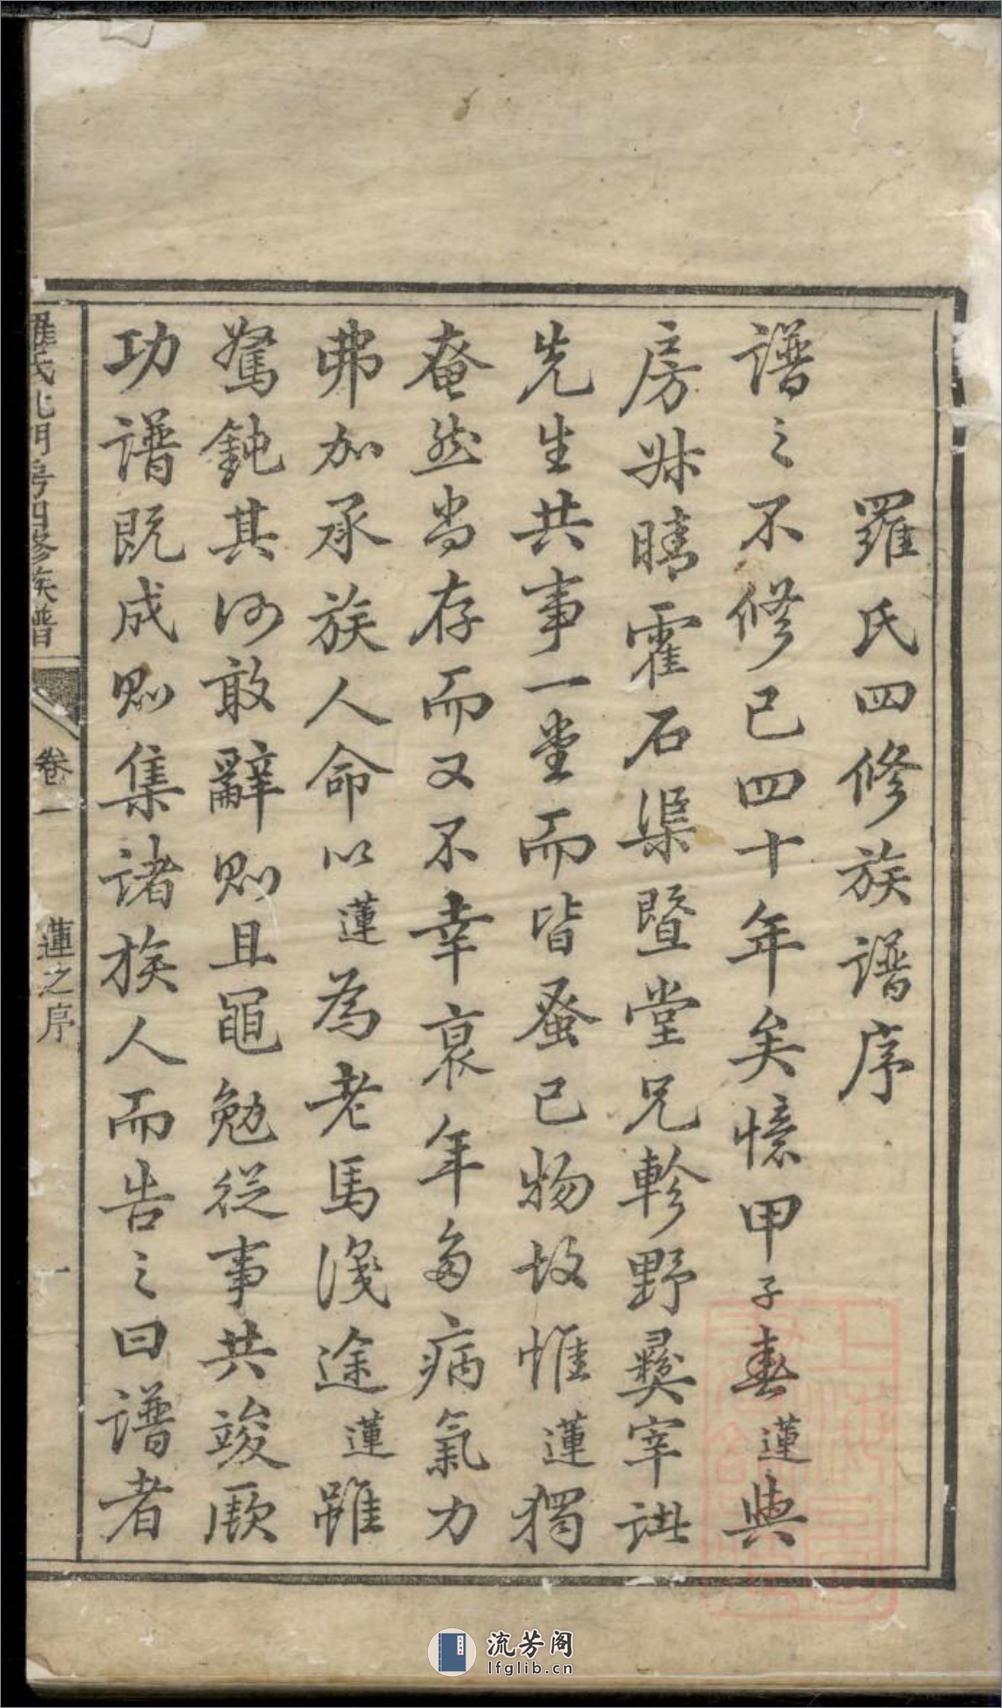 羅氏四修族譜序
譜之不修已四十年矣憶甲子春蓮與
房叔晴霍石渠暨堂兄軫野彝宰諸
先生共事一堂而皆蚤已物故惟蓮獨
奄然尚存而又不幸衰年多病氣力
弗加承族人命以蓮為老馬識途蓮雖
駑鈍其何敢辭則且黽勉從事共竣厥
功譜既成則集諸族人而告之曰譜者
羅氏北門房四修族譜
卷一
蓮之序
一
流芳阁
lfglib.cn